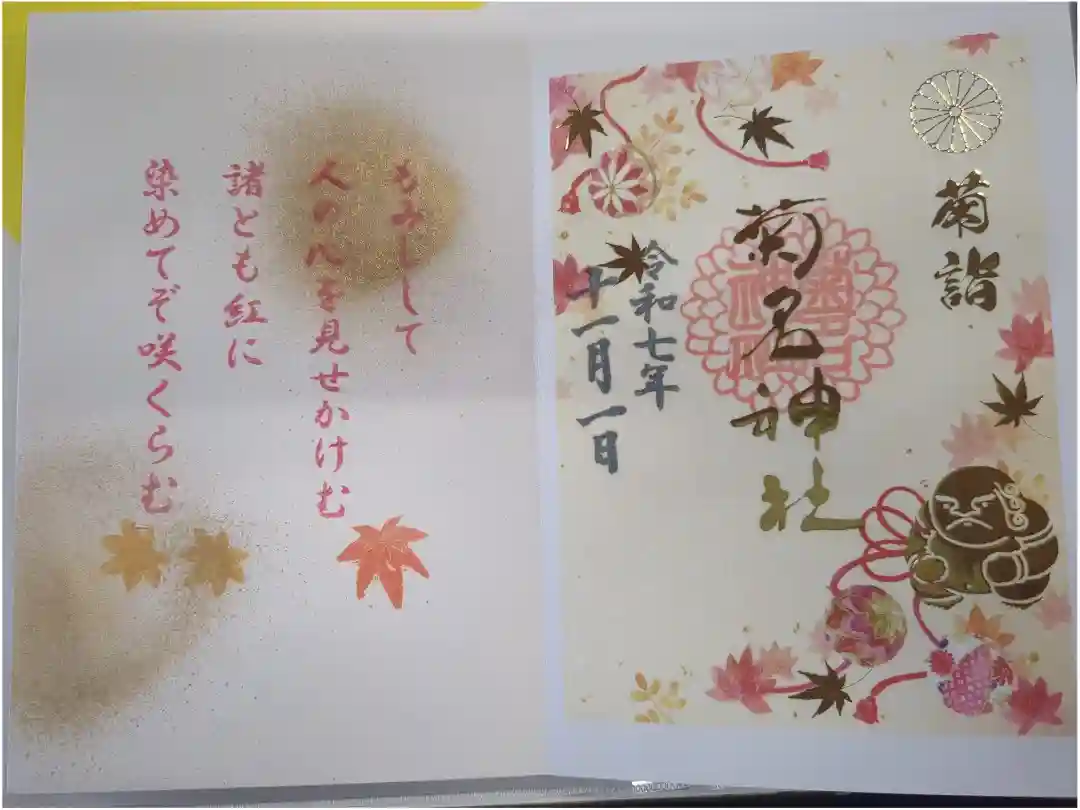 菊詣
菊名神社
菊名
神社
令和七年
十一月一日
もみじして
人の心を見せかけむ
諸とも紅に
染めてぞ咲くらむ